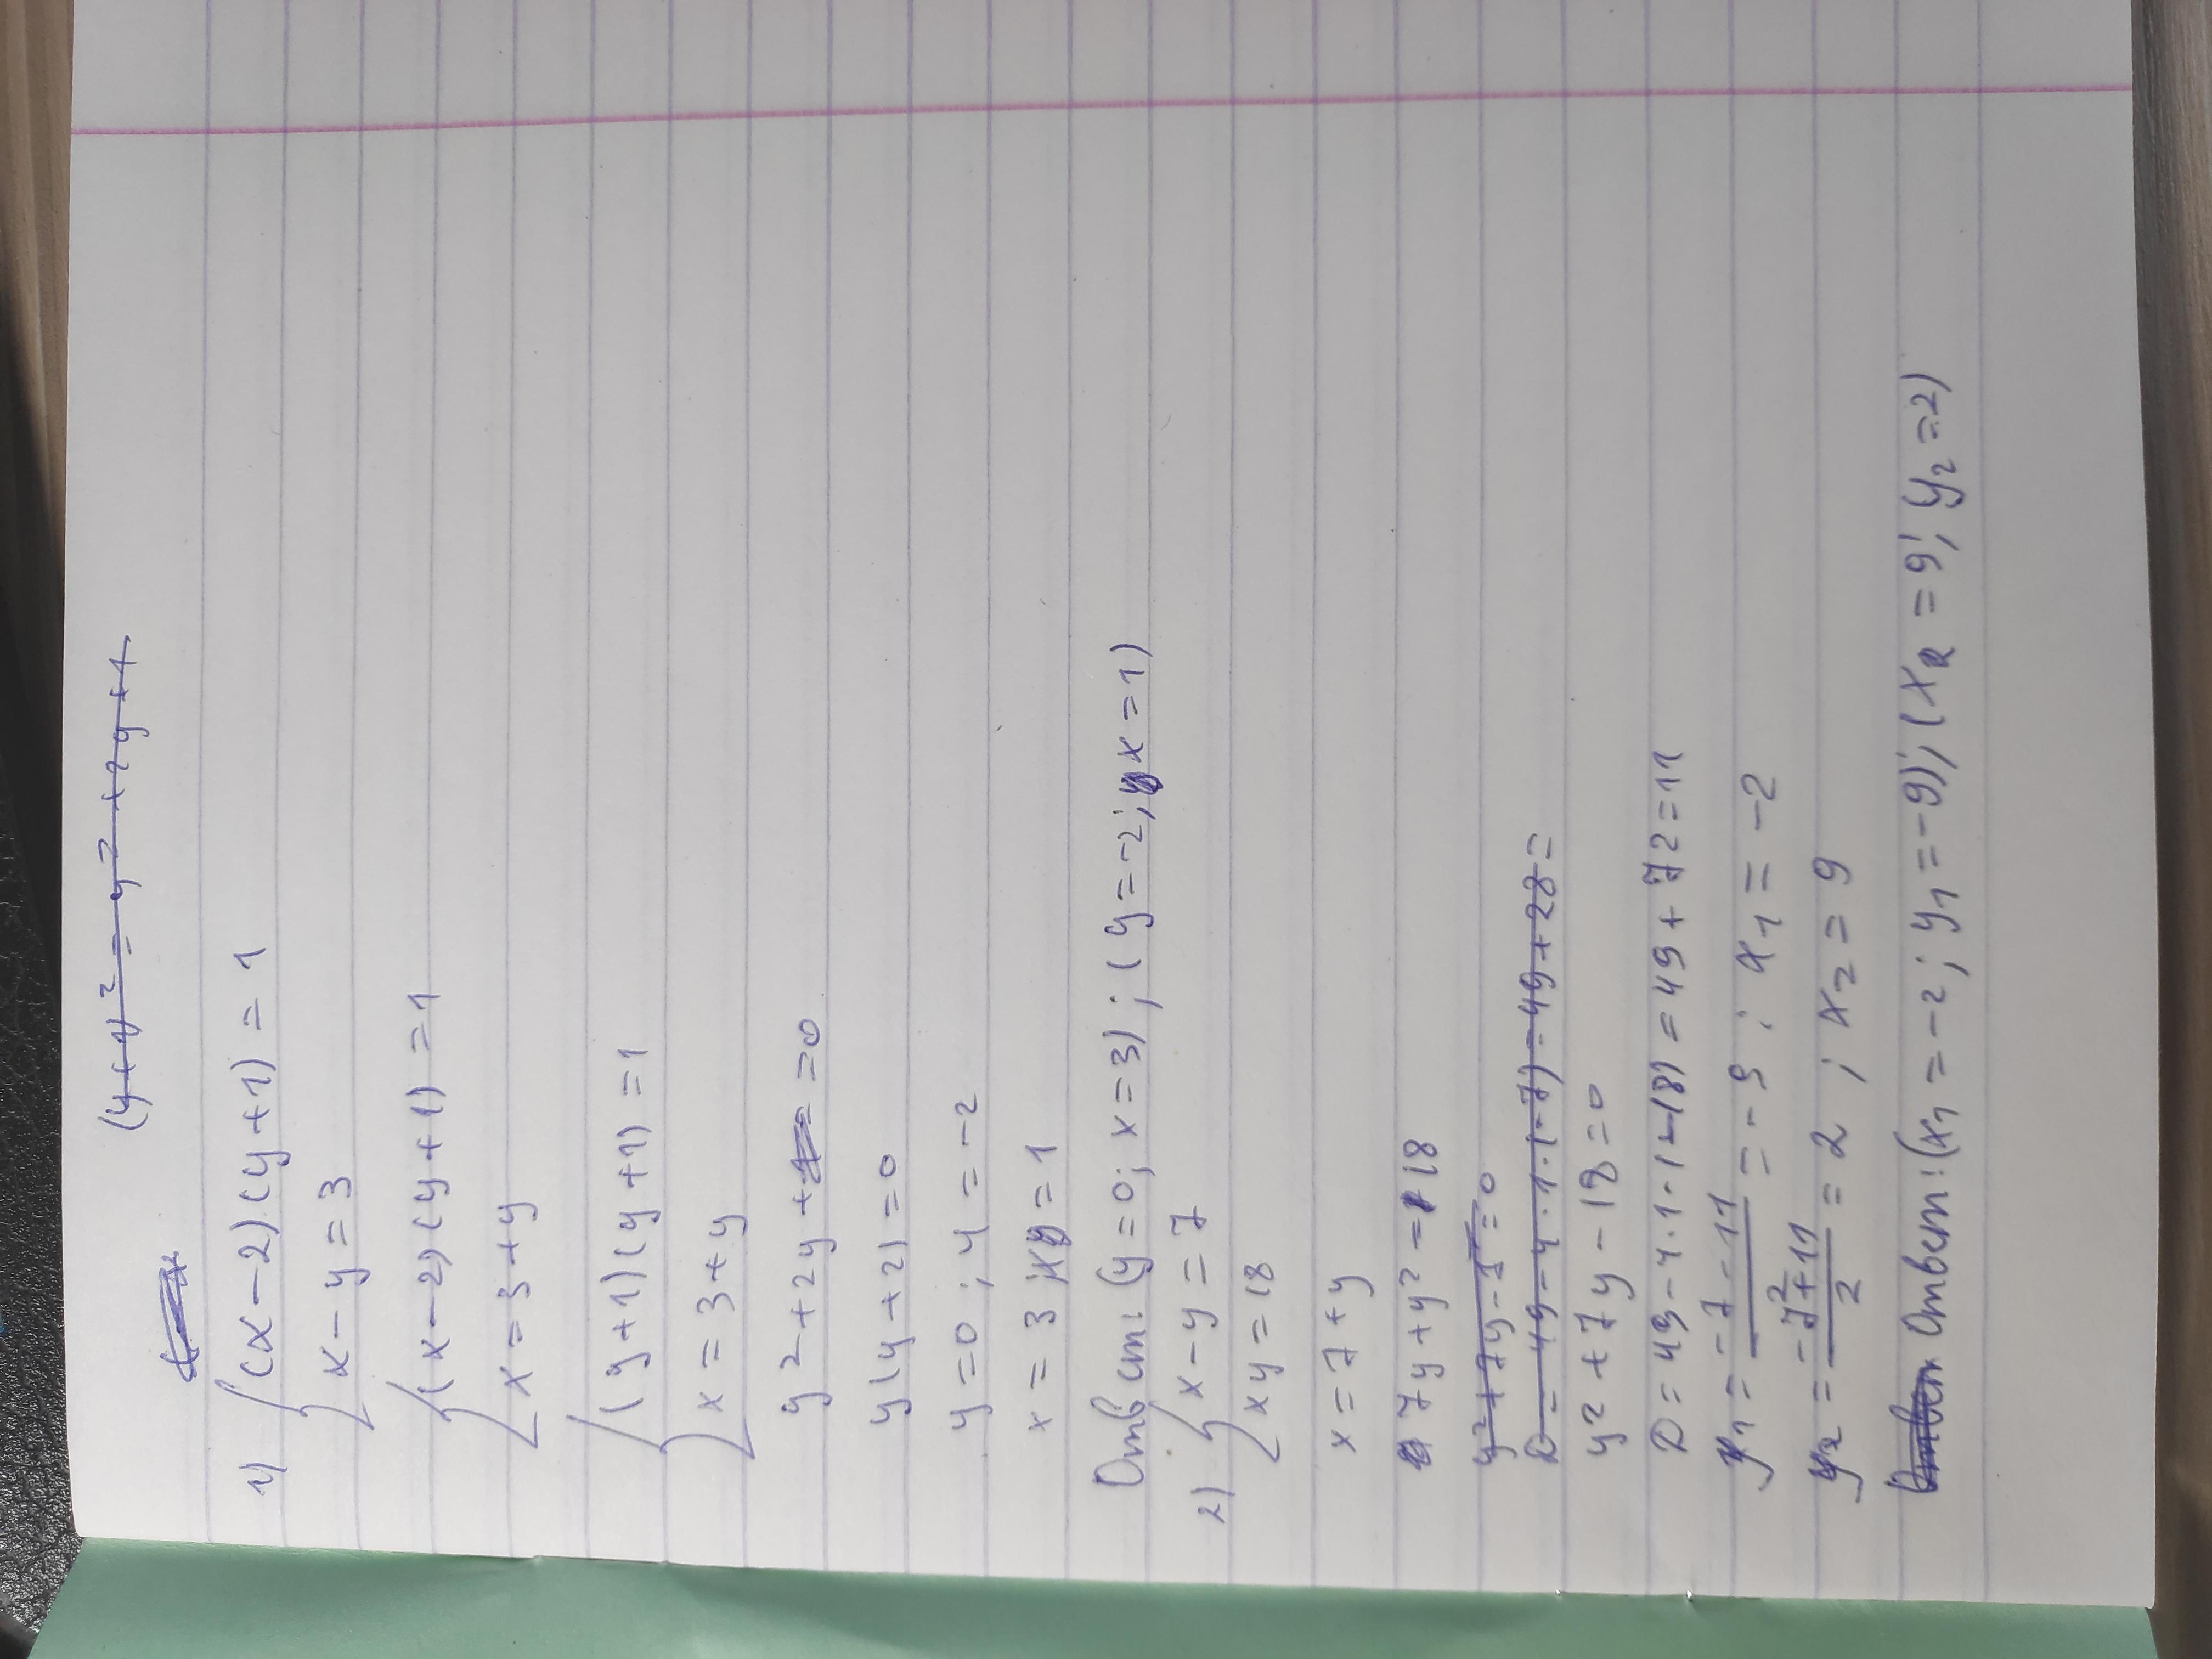 (y+1)² = y² + 2y + 1
1) { (x-2)(y+1) = 1
x-y = 3
{ (x-2)(y+1) = 1
x = 3+y
{ (y+1)(y+1) = 1
x = 3+y
y² + 2y + = 0
y(y+2) = 0
y = 0 ; y = -2
x = 3 ; x = 1
Ответ: (y=0; x=3) ; (y=-2; x=1)
2) { x-y = 7
xy = 18
x = 7+y
7y + y² = 18
y² + 7y - = 0
D = 49 - 4·1·(-7) = 49 + 28 =
y² + 7y - 18 = 0
D = 49 - 4·1·(-18) = 49 + 72 = 11
y₁ = (-7-11)/2 = -9 ; x₁ = -2
y₂ = (-7+11)/2 = 2 ; x₂ = 9
Ответ: (x₁ = -2; y₁ = -9); (x₂ = 9; y₂ = 2)